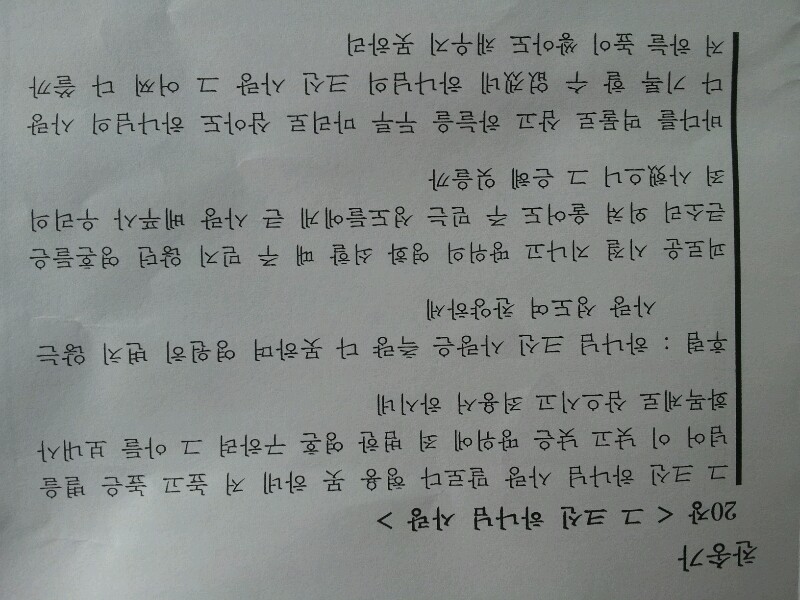 찬송가
20장 < 그 크신 하나님 사랑 >
그 크신 하나님 사랑 말로다 형용 못 하네 저 높고 높은 별을
넘어 이 낮고 낮은 땅위에 죄 범한 영혼 구하려 그 아들 보내사
화목제로 삼으시고 죄용서 하시네
후렴 : 하나님 크신 사랑은 측량 다 못하며 영원히 변치 않는
사랑 성도여 찬양하세
괴로운 시절 지나고 땅위의 영화 쇠할 때 주 믿지 않던 영혼들은
큰소리 외쳐 울어도 주 믿는 성도들에게 큰 사랑 베푸사 우리의
죄 사했으니 그 은혜 잊을까
바다를 먹물로 삼고 하늘을 두루 마리로 삼아도 하나님의 사랑
다 기록 할 수 없겠네 하나님의 크신 사랑 그 어찌 다 쓸까
저 하늘 높이 쌓아도 채우지 못하리